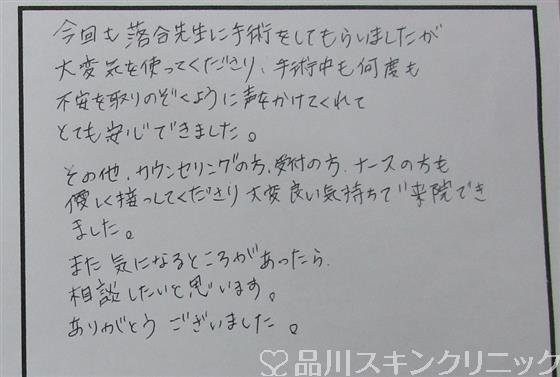 今回も落合先生に手術をしてもらいましたが
大変気を使ってくださり、手術中も何度も
不安を取りのぞくように声をかけてくれて
とても安心できました。
その他、カウンセリングの方、受付の方、ナースの方も
優しく接っしてくださり大変良い気持ちで来院でき
ました。
また気になるところがあったら、
相談したいと思います。
ありがとうございました。
品川スキンクリニック